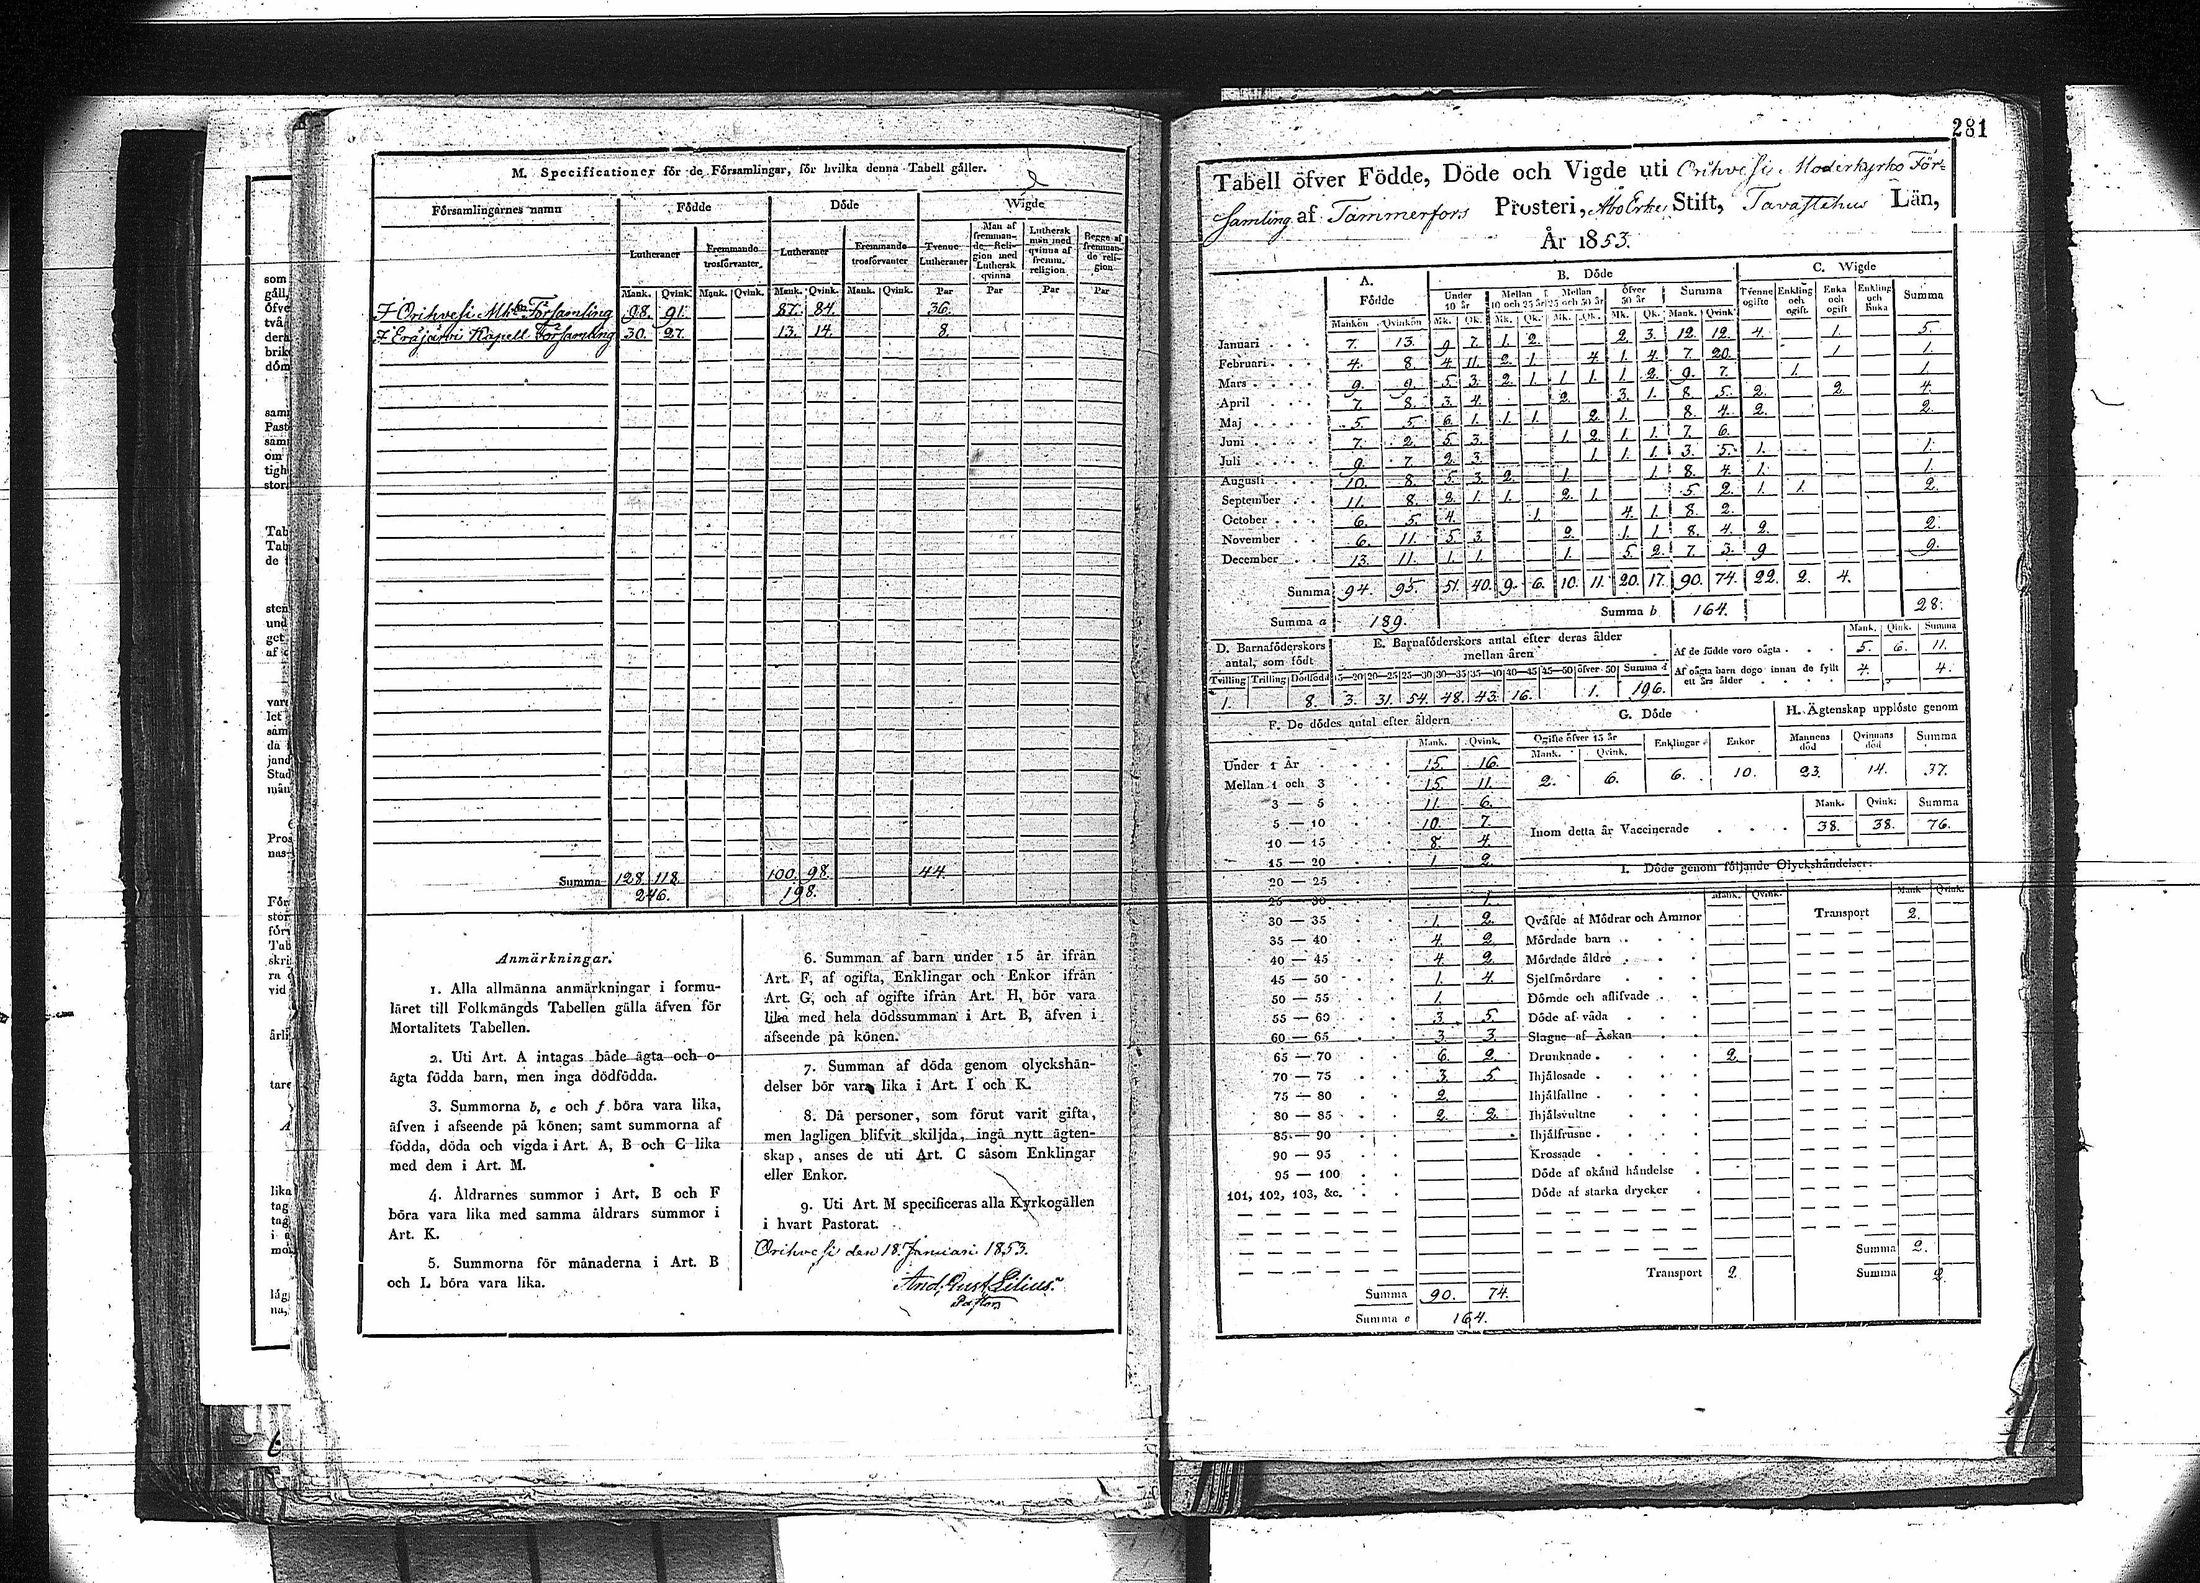 M. Specificationer för de Församlingar, för hvilka denna Tabell gäller.
Församlingarnes namn Födde Döde Wigde
Lutheraner Fremmande trosförvanter Lutheraner Fremmande trosförvanter Tvenne Lutheraner Man af fremmande Religion med Luthersk qvinna Luthersk man med qvinna af fremm. religion Begge af fremmande religion
Mank. Qvink. Mank. Qvink. Mank. Qvink. Mank. Qvink. Par Par Par Par
I Orihvesi Mk Församling 98. 91. 87. 84. 36.
I Eräjärvi Kapell Församling 30. 27. 13. 14. 8.
Summa 128. 118. 100. 98. 44.
246. 198.
Anmärkningar.
1. Alla allmänna anmärkningar i formu-
läret till Folkmängds Tabellen gälla äfven för
Mortalitets Tabellen.
2. Uti Art. A intagas både ägta och o-
ägta födda barn, men inga dödfödda.
3. Summorna b, e och f böra vara lika,
äfven i afseende på könen; samt summorna af
födda, döda och vigda i Art. A, B och C lika
med dem i Art. M.
4. Åldrarnes summor i Art. B och F
böra vara lika med samma åldrars summor i
Art. K.
5. Summorna för månaderna i Art. B
och L böra vara lika.
6. Summan af barn under 15 år ifrån
Art. F, af ogifta, Enklingar och Enkor ifrån
Art. G, och af ogifte ifrån Art. H, bör vara
lika med hela dödssumman i Art. B, äfven i
afseende på könen.
7. Summan af döda genom olyckshän-
delser bör vara lika i Art. I och K.
8. Då personer, som förut varit gifta,
men lagligen blifvit skiljda, ingå nytt ägten-
skap, anses de uti Art. C såsom Enklingar
eller Enkor.
9. Uti Art. M specificeras alla Kyrkogällen
i hvart Pastorat.
Orihvesi den 18. Januari 1853.
And. Gust. Lilius.
Pastor
281
Tabell öfver Födde, Döde och Vigde uti Orihvesi Moderkyrko För-
samling af Tammerfors Prosteri, Åbo Erke Stift, Tavastehus Län,
År 1853.
A. Födde B. Döde C. Wigde
Under 10 år Mellan 10 och 25 år Mellan 25 och 50 år Öfver 50 år Summa Tvenne ogifte Enkling och ogift Enka och ogift Enkling och Enka Summa
Mankön Qvinkön Mk. Qk. Mk. Qk. Mk. Qk. Mk. Qk. Mank. Qvink
Januari 7. 13. 9 7. 1. 2. 2. 3. 12. 12. 4. 1. 5.
Februari 4. 8. 4. 11. 2. 1. 4. 1. 4. 7. 20. 1 1.
Mars 9. 9. 5. 3. 2. 1. 1. 1. 1. 2. 9. 7. 1. 1.
April 7. 8. 3. 4. 2. 3. 1. 8. 5. 2. 2. 4.
Maj 5. 5. 6. 1. 1. 1. 2. 1. 8. 4. 2. 2.
Juni 7. 2. 5. 3. 1. 2. 1. 1. 7. 6.
Juli 9. 7. 2. 3. 1. 1. 1. 3. 5. 1. 1.
Augusti 10. 8. 5. 3. 2. 1. 1. 8. 4. 1. 1.
September 11. 8. 2. 1. 1. 2. 1. 5. 2. 1. 1. 2.
October 6. 5. 4. 1. 4. 1. 8. 2.
November 6. 11. 5. 3. 2. 1. 1. 8. 4. 2. 2.
December 13. 11. 1. 1. 1. 5. 2. 7. 3. 9 9.
Summa 94. 95. 51. 40. 9. 6. 10. 11. 20. 17. 90. 74. 22. 2. 4.
Summa a 189. Summa b 164. 28.
D. Barnaföderskors antal, som födt
Tvilling Trilling Dödfödd
1. 8.
E. Barnaföderskors antal efter deras ålder mellan åren
15—20 20—25 25—30 30—35 35—40 40—45 45—50 öfver 50 Summa d
3. 31. 54. 48. 43. 16. 1. 196.
Mank. Qink. Summa
Af de födde voro oägta 5. 6. 11.
Af oägta barn dogo innan de fyllt ett års ålder 4. 4.
F. De dödes antal efter åldern
Mank. Qvink.
Under 1 År 15. 16.
Mellan 1 och 3 15. 11.
3 — 5 11. 6.
5 — 10 10. 7.
10 — 15 8. 4.
15 — 20 1 2.
20 — 25
25 — 30 1.
30 — 35 1. 2.
35 — 40 4. 2.
40 — 45 4. 2.
45 — 50 1. 4.
50 — 55 1.
55 — 60 3. 5.
60 — 65 3. 3.
65 — 70 6. 2.
70 — 75 3. 5.
75 — 80 2.
80 — 85 2. 2.
85 — 90
90 — 95
95 — 100
101, 102, 103, &c.
Summa 90. 74.
Summa e 164.
G. Döde
Ogifte öfver 15 år Enklingar Enkor
Mank. Qvink.
2. 6. 6. 10.
H. Ägtenskap upplöste genom
Mannens död Qvinnans död Summa
23. 14. 37.
Mank. Qvink. Summa
Inom detta år Vaccinerade 38. 38. 76.
I. Döde genom följande Olyckshändelser:
Mank. Qvink. Mank Qvink.
Qväfde af Mödrar och Ammor Transport 2.
Mördade barn
Mördade äldre
Sjelfmördare
Dömde och aflifvade
Döde af våda
Slagne af Åskan
Drunknade 2.
Ihjälosade
Ihjälfallne
Ihjälsvultne
Ihjälfrusne
Krossade
Döde af okänd händelse
Döde af starka drycker
Summa 2.
Transport 2. Summa 2.